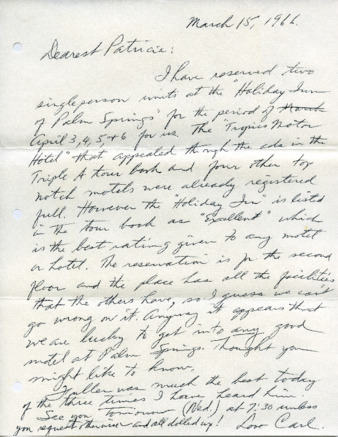 March 15, 1966.
Dearest Patricia:
I have reserved two
single person units at the "Holiday Inn
of Palm Springs" for the period of March
April 3, 4, 5 + 6 for us. The "Tropics Motor
Hotel" that appealed through the ads in the
Triple A tour book and four other top
notch motels were already registered
full. However the "Holiday Inn" is listed
in the tour book as "Excellent" which
is the best rating given to any motel
or hotel. The reservation is for the second
floor and the place has all the facilities
that the others have, so I guess we can't
go wrong on it. Anyway it appears that
we are lucky to get into any good
motel at Palm Springs. Thought you
might like to know.
Fuller was much the best today
of the three times I have heard him.
See you tomorrow (Wed.) at 7:30 unless
you request otherwise and all dolled up! Love Carl.